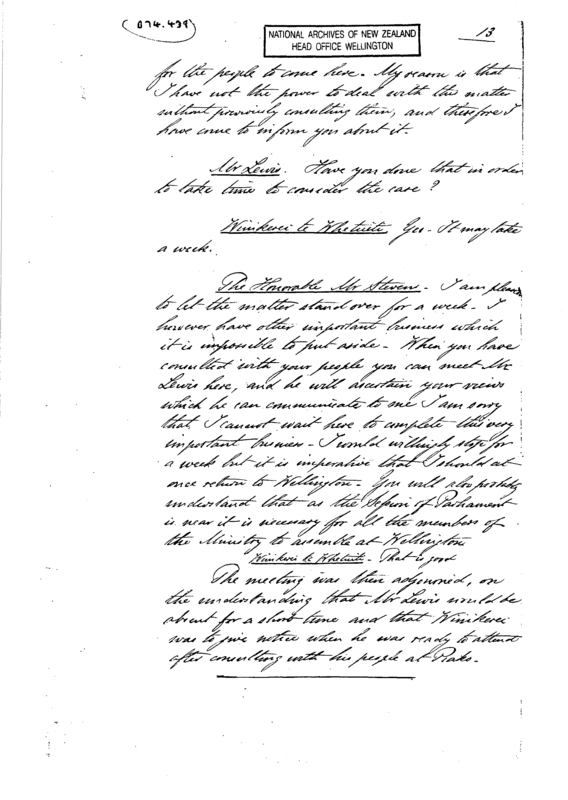 (074.439)
NATIONAL ARCHIVES OF NEW ZEALAND
HEAD OFFICE WELLINGTON
13
for the people to come here. My reason is that
I have not the power to deal with the matter
without previously consulting them, and therefore I
have come to inform you about it.
Mr Lewis. Have you done that in order
to take time to consider the case?
Winikerei te Whetuiti. Yes - It may take
a week.
The Honorable Mr Stevens - I am pleased
to let the matter stand over for a week - I
however have other important business which
it is impossible to put aside - When you have
consulted with your people you can meet Mr
Lewis here, and he will ascertain your views
which he can communicate to me. I am sorry
that I cannot wait here to complete this very
important business - I would willingly stop for
a week but it is imperative that I should at
once return to Wellington - You will also probably
understand that as the Session of Parliament
is near it is necessary for all the members of
the Ministry to assemble at Wellington
Winikerei te Whetuiti - That is good
The meeting was then adjourned, on
the understanding that Mr Lewis would be
absent for a short time and that Winikerei
was to give notice when he was ready to attend
after consulting with his people at Piako.